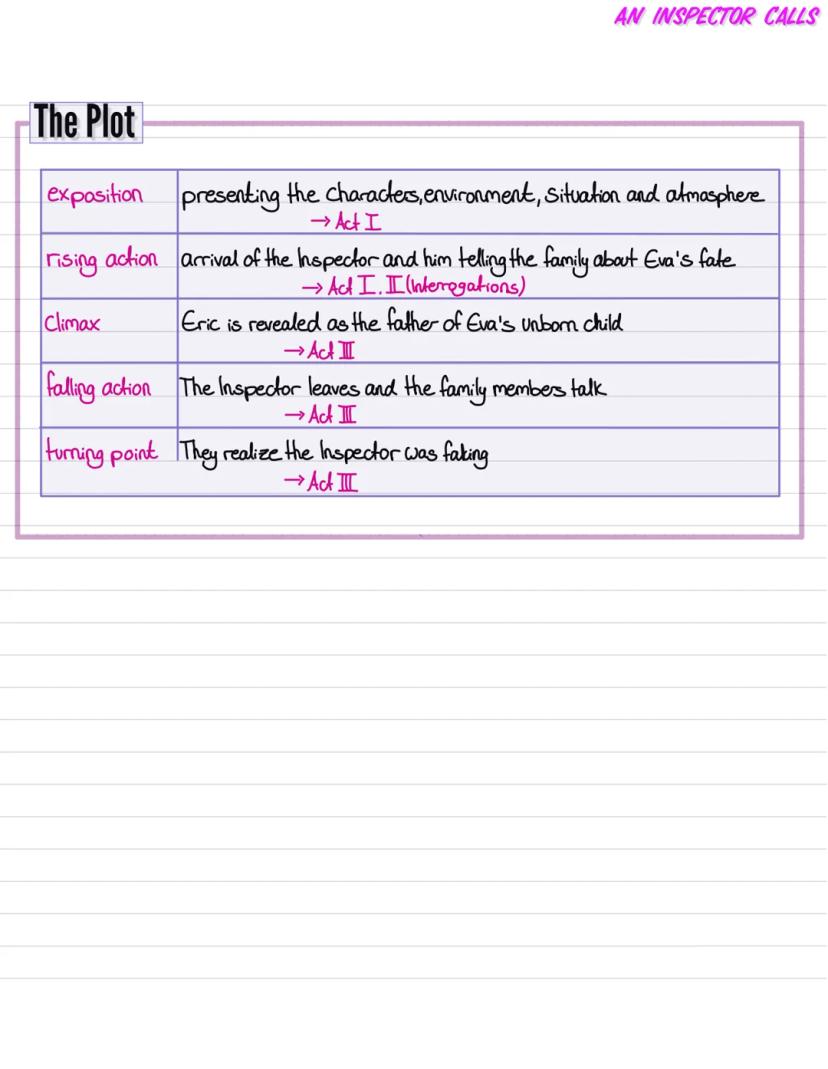 AN INSPECTOR CALLS
The Plot
exposition presenting the characters, environment, situation and atmosphere
→ Act I
rising action arrival of the Inspector and him telling the family about Eva's fate
→ Act I, II (Interrogations)
Climax Eric is revealed as the father of Eva's unborn child
→ Act III
falling action The Inspector leaves and the family members talk
→ Act III
turning point They realize the Inspector was faking
→ Act III